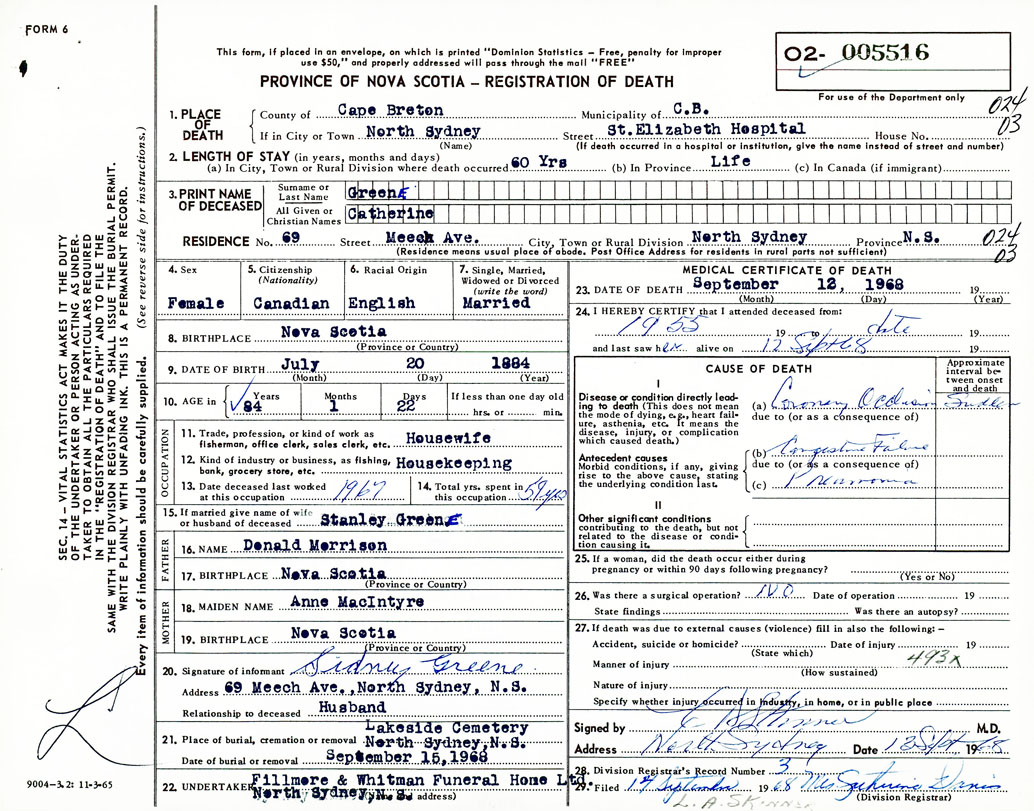 FORM 6
This form, if placed in an envelope, on which is printed "Dominion Statistics — Free, penalty for improper
use $50," and properly addressed will pass through the mail "FREE"
PROVINCE OF NOVA SCOTIA – REGISTRATION OF DEATH
02- 005516
For use of the Department only
024
03
1. PLACE OF DEATH
County of Cape Breton Municipality of C.B.
If in City or Town North Sydney Street St.Elizabeth Hospital House No.
(Name) (If death occurred in a hospital or institution, give the name instead of street and number)
2. LENGTH OF STAY (in years, months and days)
(a) In City, Town or Rural Division where death occurred 60 Yrs (b) In Province Life (c) In Canada (if immigrant)
3. PRINT NAME OF DECEASED
Surname or Last Name GreenE
All Given or Christian Names Catherine
RESIDENCE No. 69 Street Meech Ave. City, Town or Rural Division North Sydney Province N.S.
(Residence means usual place of abode. Post Office Address for residents in rural parts not sufficient)
024
03
4. Sex
Female
5. Citizenship
(Nationality)
Canadian
6. Racial Origin
English
7. Single, Married, Widowed or Divorced
(write the word)
Married
8. BIRTHPLACE Nova Scotia
(Province or Country)
9. DATE OF BIRTH July 20 1884
(Month) (Day) (Year)
10. AGE in Years Months Days If less than one day old
84 1 22 hrs. or min.
OCCUPATION
11. Trade, profession, or kind of work as
fisherman, office clerk, sales clerk, etc. Housewife
12. Kind of industry or business, as fishing,
bank, grocery store, etc. Housekeeping
13. Date deceased last worked
at this occupation 1967
14. Total yrs. spent in
this occupation 59 yrs
15. If married give name of wife
or husband of deceased Stanley GreenE
FATHER
16. NAME Donald Morrison
17. BIRTHPLACE Nova Scotia
(Province or Country)
MOTHER
18. MAIDEN NAME Anne MacIntyre
19. BIRTHPLACE Nova Scotia
(Province or Country)
20. Signature of informant Sidney Greene
Address 69 Meech Ave.,North Sydney, N.S.
Relationship to deceased Husband
Lakeside Cemetery
21. Place of burial, cremation or removal North Sydney,N.S.
Date of burial or removal September 15,1968
22. UNDERTAKER Fillmore & Whitman Funeral Home Ltd.
North Sydney,N.S.
(Name and address)
MEDICAL CERTIFICATE OF DEATH
23. DATE OF DEATH September 12, 1968 19
(Month) (Day) (Year)
24. I HEREBY CERTIFY that I attended deceased from:
1955 19 to date 19
and last saw her alive on 12 Sept 68 19
CAUSE OF DEATH
Approximate interval between onset and death
I
Disease or condition directly leading to death (This does not
mean the mode of dying, e.g., heart failure, asthenia, etc. It means the
disease, injury, or complication
which caused death.)
(a) Coronary Occlusion Sudden
due to (or as a consequence of)
Antecedent causes
Morbid conditions, if any, giving
rise to the above cause, stating
the underlying condition last.
(b) Congestive Failure
due to (or as a consequence of)
(c) Pneumonia
II
Other significant conditions
contributing to the death, but not
related to the disease or condition causing it.
25. If a woman, did the death occur either during
pregnancy or within 90 days following pregnancy?
(Yes or No)
26. Was there a surgical operation? NO Date of operation 19
State findings Was there an autopsy?
27. If death was due to external causes (violence) fill in also the following: –
Accident, suicide or homicide? Date of injury 19
(State which) 493X
Manner of injury
(How sustained)
Nature of injury
Specify whether injury occurred in industry, in home, or in public place
Signed by M.D.
Address North Sydney Date 13 Sept 1968
28. Division Registrar's Record Number 3
29. Filed 14 September 1968 Mrs
(Division Registrar)
L. A. SKINNER
SEC. 14 – VITAL STATISTICS ACT MAKES IT THE DUTY
OF THE UNDERTAKER OR PERSON ACTING AS UNDERTAKER TO OBTAIN ALL THE PARTICULARS REQUIRED
IN THE "REGISTRATION OF DEATH" AND TO FILE THE
SAME WITH THE DIVISION REGISTRAR WHO SHALL ISSUE THE BURIAL PERMIT.
WRITE PLAINLY WITH UNFADING INK. THIS IS A PERMANENT RECORD.
Every item of information should be carefully supplied. (See reverse side for instructions.)
9004-3.2: 11-3-65